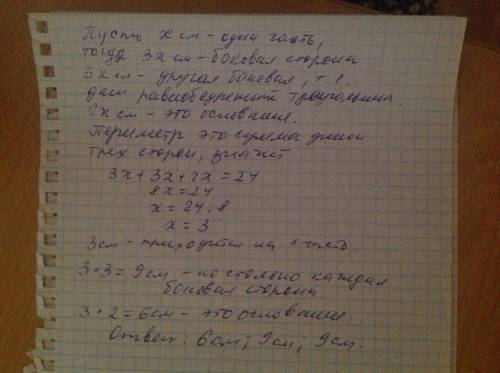 Пусть x см - одна часть,
тогда 3x см - боковая сторона
3x см - другая боковая, т.к.
дан равнобедренный треугольник.
2x см - это основание.
Периметр это сумма длин
трех сторон, значит
3x + 3x + 2x = 24
8x = 24
x = 24 : 8
x = 3
3 см - приходится на 1 часть
3 · 3 = 9 см - по столько каждая
боковая сторона
3 · 2 = 6 см - это основание.
Ответ: 6 см; 9 см; 9 см.